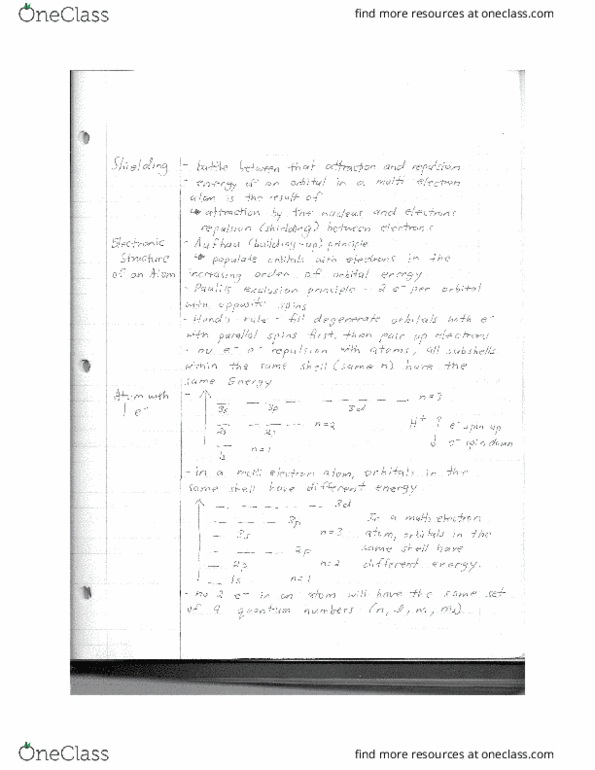 OneClass
find more resources at oneclass.com
Shielding - battle between that attraction and repulsion
- energy of an orbital in a multi electron
atom is the result of
↳ attraction by the nucleus and electrons
repulsion (shielding) between electrons
Electronic Structure of an Atom - Aufbau (building-up) principle
↳ populate orbitals with electrons in the
increasing order of orbital energy
- Paulis exclusion principle - 2 e⁻ per orbital
with opposite spins
- Hund's rule - fill degenerate orbitals with e⁻
with parallel spins first, then pair up electrons
- no e⁻ e⁻ repulsion with atoms, all subshells
within the same shell (same n) have the
same Energy
Atom with 1 e⁻
n=3
3s 3p 3d
n=2
2s 2p
1s n=1
H⁺ ↑ e⁻ spin up
↓ e⁻ spin down
- in a multi electron atom, orbitals in the
same shell have different energy
3d
3p
3s n=3
2p
2s n=2
1s n=1
In a multi electron
atom, orbitals in the
same shell have
different energy.
- no 2 e⁻ in an atom will have the same set
of 4 quantum numbers (n, l,
OneClass
find more resources at oneclass.com